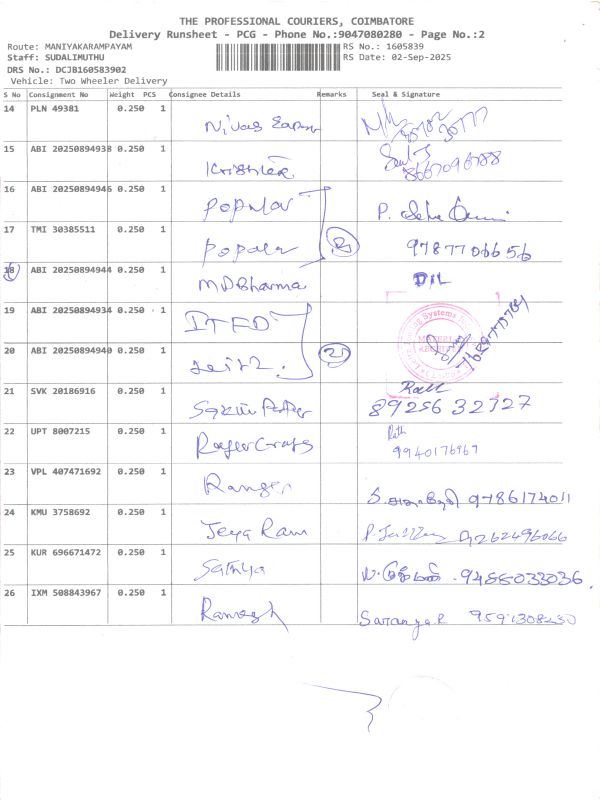 THE PROFESSIONAL COURIERS, COIMBATORE
Delivery Runsheet - PCG - Phone No.:9047080280 - Page No.:2
Route: MANIYAKARAMPAYAM
RS No.: 1605839
Staff: SUDALIMUTHU
RS Date: 02-Sep-2025
DRS No.: DCJB160583902
Vehicle: Two Wheeler Delivery
S No Consignment No Weight PCS Consignee Details Remarks Seal & Signature
14 PLN 49381 0.250 1 Nivas
15 ABI 20250894938 0.250 1
16 ABI 20250894946 0.250 1 popular P.
17 TMI 30385511 0.250 1 popular 9787706656
18 ABI 20250894944 0.250 1 MDBharma DIL
19 ABI 20250894934 0.250 1
20 ABI 20250894940 0.250 1 2
21 SVK 20186916 0.250 1 8925632727
22 UPT 8007215 0.250 1 9940176967
23 VPL 407471692 0.250 1 Ranger 9786174011
24 KMU 3758692 0.250 1 Jeya Ram 9262496066
25 KUR 696671472 0.250 1 Sathya 9488033036
26 IXM 508843967 0.250 1 Ramesh Saranya R 9591308230